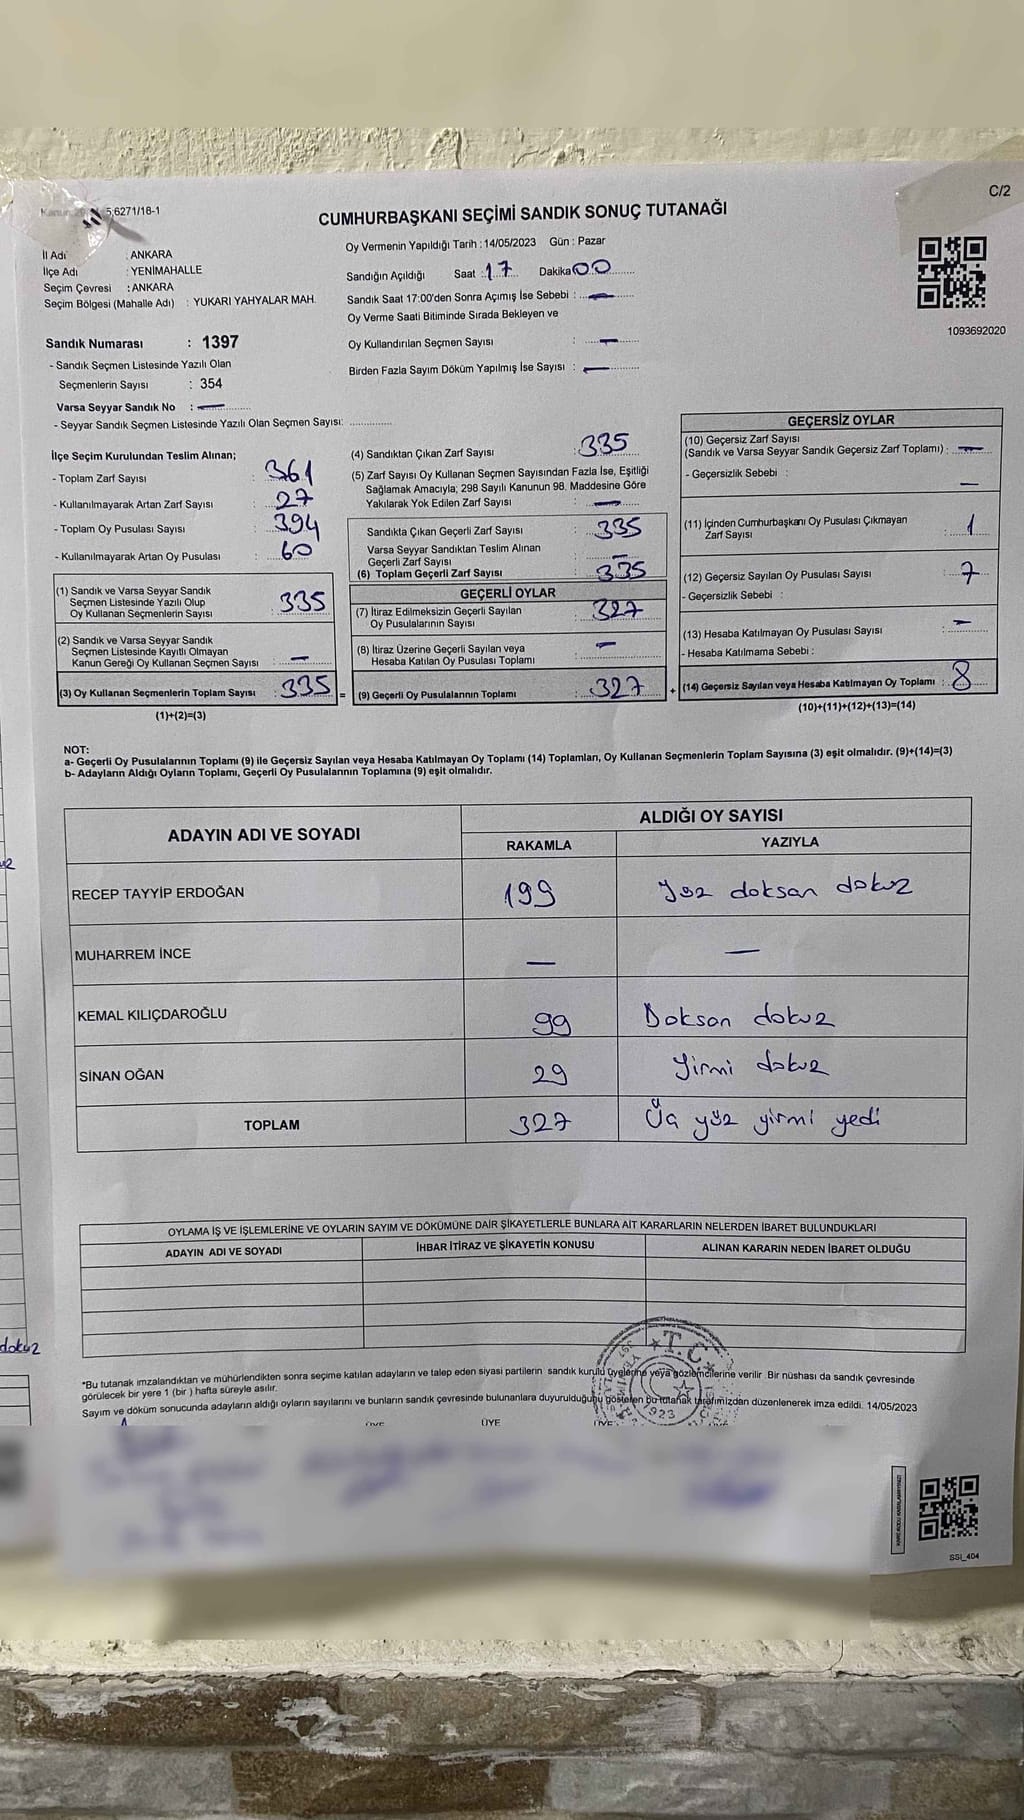 C/2
5;6271/18-1
CUMHURBAŞKANI SEÇİMİ SANDIK SONUÇ TUTANAĞI
İl Adı : ANKARA
İlçe Adı : YENİMAHALLE
Seçim Çevresi : ANKARA
Seçim Bölgesi (Mahalle Adı) : YUKARI YAHYALAR MAH.
Oy Vermenin Yapıldığı Tarih : 14/05/2023 Gün : Pazar
Sandığın Açıldığı Saat : 17 Dakika 00
Sandık Saat 17:00'den Sonra Açımış İse Sebebi : —
Oy Verme Saati Bitiminde Sırada Bekleyen ve
Oy Kullandırılan Seçmen Sayısı : —
Birden Fazla Sayım Döküm Yapılmış İse Sayısı : —
1093692020
Sandık Numarası : 1397
- Sandık Seçmen Listesinde Yazılı Olan
Seçmenlerin Sayısı : 354
Varsa Seyyar Sandık No : —
- Seyyar Sandık Seçmen Listesinde Yazılı Olan Seçmen Sayısı: ..............
İlçe Seçim Kurulundan Teslim Alınan;
- Toplam Zarf Sayısı : 361
- Kullanılmayarak Artan Zarf Sayısı : 27
- Toplam Oy Pusulası Sayısı : 394
- Kullanılmayarak Artan Oy Pusulası : 60
(1) Sandık ve Varsa Seyyar Sandık
Seçmen Listesinde Yazılı Olup
Oy Kullanan Seçmenlerin Sayısı : 335
(2) Sandık ve Varsa Seyyar Sandık
Seçmen Listesinde Kayıtlı Olmayan
Kanun Gereği Oy Kullanan Seçmen Sayısı : —
(3) Oy Kullanan Seçmenlerin Toplam Sayısı : 335 =
(1)+(2)=(3)
(4) Sandıktan Çıkan Zarf Sayısı : 335
(5) Zarf Sayısı Oy Kullanan Seçmen Sayısından Fazla İse, Eşitliği
Sağlamak Amacıyla; 298 Sayılı Kanunun 98. Maddesine Göre
Yakılarak Yok Edilen Zarf Sayısı : —
Sandıkta Çıkan Geçerli Zarf Sayısı : 335
Varsa Seyyar Sandıktan Teslim Alınan
Geçerli Zarf Sayısı : —
(6) Toplam Geçerli Zarf Sayısı : 335
GEÇERLİ OYLAR
(7) İtiraz Edilmeksizin Geçerli Sayılan
Oy Pusulalarının Sayısı : 327
(8) İtiraz Üzerine Geçerli Sayılan veya
Hesaba Katılan Oy Pusulası Toplamı : —
(9) Geçerli Oy Pusulalarının Toplamı : 327 +
GEÇERSİZ OYLAR
(10) Geçersiz Zarf Sayısı
(Sandık ve Varsa Seyyar Sandık Geçersiz Zarf Toplamı) : —
- Geçersizlik Sebebi : —
(11) İçinden Cumhurbaşkanı Oy Pusulası Çıkmayan
Zarf Sayısı : 1
(12) Geçersiz Sayılan Oy Pusulası Sayısı : 7
- Geçersizlik Sebebi :
(13) Hesaba Katılmayan Oy Pusulası Sayısı : —
- Hesaba Katılmama Sebebi :
(14) Geçersiz Sayılan veya Hesaba Katılmayan Oy Toplamı : 8
(10)+(11)+(12)+(13)=(14)
NOT:
a- Geçerli Oy Pusulalarının Toplamı (9) ile Geçersiz Sayılan veya Hesaba Katılmayan Oy Toplamı (14) Toplamları, Oy Kullanan Seçmenlerin Toplam Sayısına (3) eşit olmalıdır. (9)+(14)=(3)
b- Adayların Aldığı Oyların Toplamı, Geçerli Oy Pusulalarının Toplamına (9) eşit olmalıdır.
ADAYIN ADI VE SOYADI ALDIĞI OY SAYISI
RAKAMLA YAZIYLA
RECEP TAYYİP ERDOĞAN 199 Yüz doksan dokuz
MUHARREM İNCE — —
KEMAL KILIÇDAROĞLU 99 Doksan dokuz
SİNAN OĞAN 29 Yirmi dokuz
TOPLAM 327 Üç yüz yirmi yedi
OYLAMA İŞ VE İŞLEMLERİNE VE OYLARIN SAYIM VE DÖKÜMÜNE DAİR ŞİKAYETLERLE BUNLARA AİT KARARLARIN NELERDEN İBARET BULUNDUKLARI
ADAYIN ADI VE SOYADI İHBAR İTİRAZ VE ŞİKAYETİN KONUSU ALINAN KARARIN NEDEN İBARET OLDUĞU
dokuz
T.C.
1923
*Bu tutanak imzalandıktan ve mühürlendikten sonra seçime katılan adayların ve talep eden siyasi partilerin sandık kurulu üyelerine veya gözlemcilerine verilir. Bir nüshası da sandık çevresinde
görülecek bir yere 1 (bir ) hafta süreyle asılır.
Sayım ve döküm sonucunda adayların aldığı oyların sayılarını ve bunların sandık çevresinde bulunanlara duyurulduğunu gösteren bu tutanak tarafımızdan düzenlenerek imza edildi. 14/05/2023
ÜYE ÜYE ÜYE
SSI_404